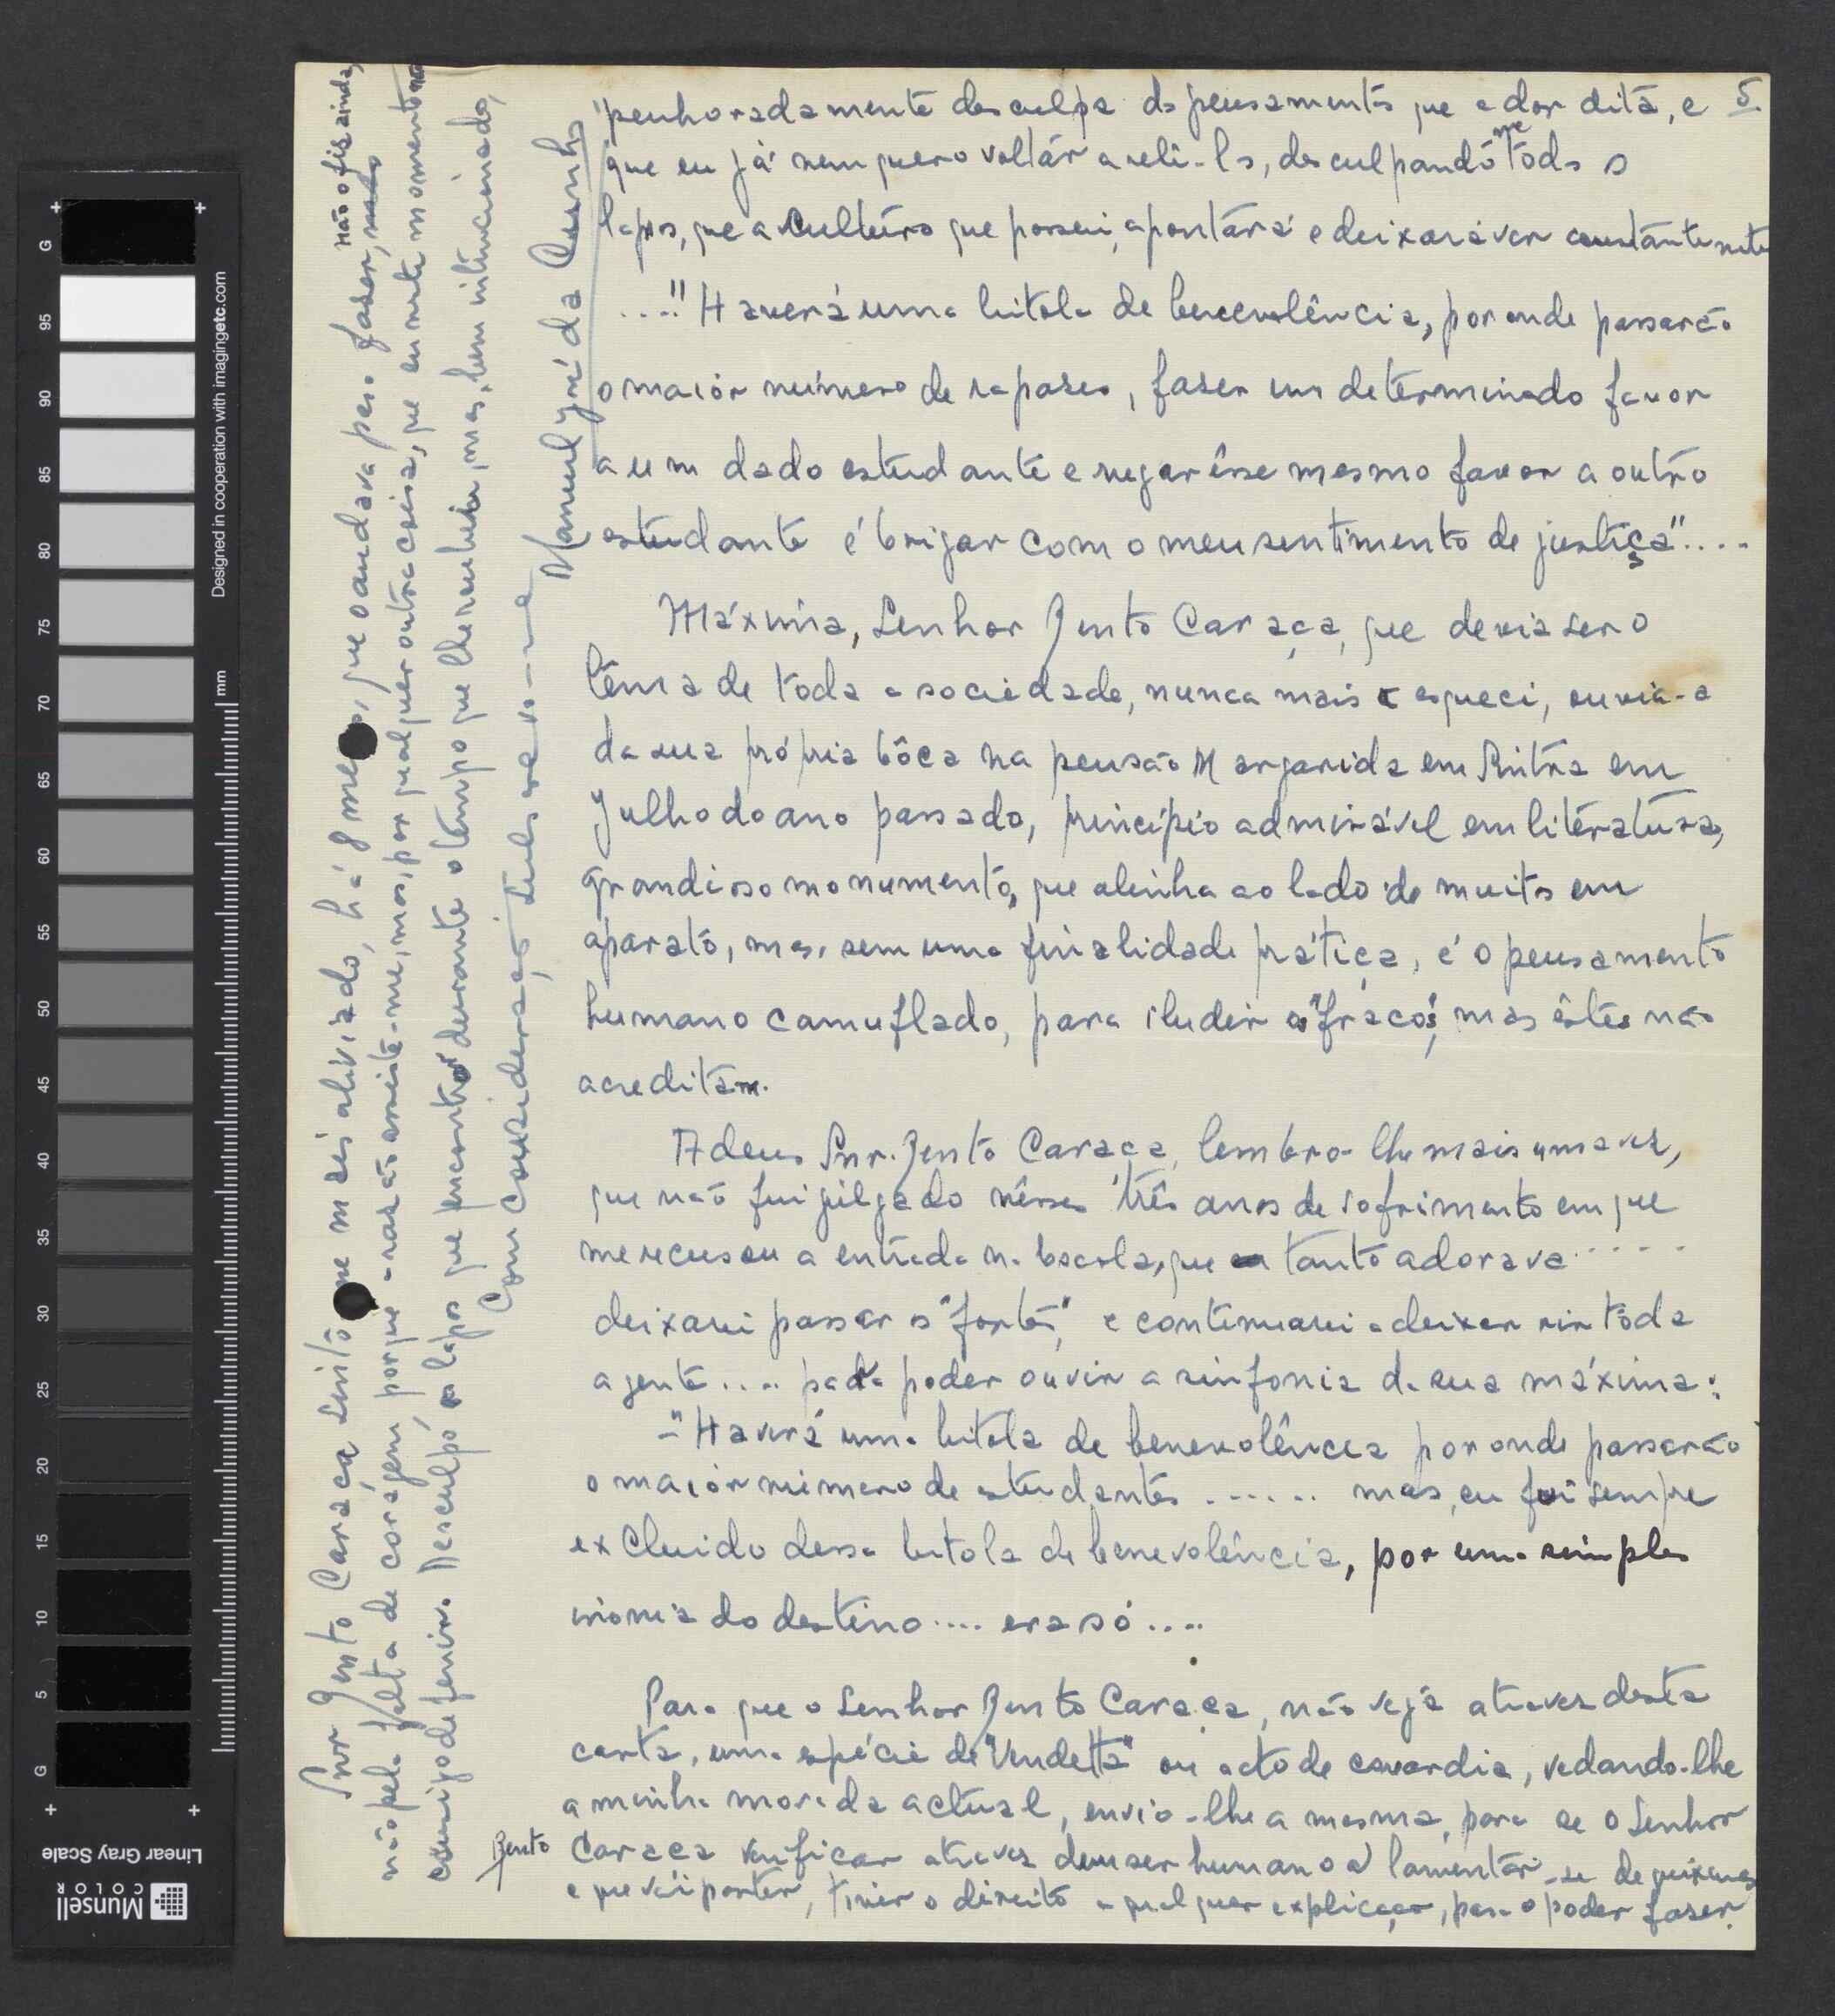 5.
penhoradamente desculpa dos pensamentos que a dor dita, e
que eu já nem quero voltár a relê-los, desculpando me todos os
lapsos, que a Cultura que possui, apontará e deixará ver constantemente
...." Haverá uma bitola de benevolência, por onde passarão
o maiór número de rapases, faser um determinado favor
a um dado estudante e negar êsse mesmo favor a outro
estudante é brigar com o meu sentimento de justiça"....
Máxima, Senhor Bento Caraça, que devia ser o
têma de toda a sociedade, nunca mais a esqueci, ouvia-a
da sua própria bôca na pensão Margarida em Sintra em
Julho do ano passado, princípio admirável em literatura,
grandioso monumento, que alinha ao lado de muitos em
aparato, mas, sem uma finalidade prática, é o pensamento
humano camuflado, para iludir os "fracos", mas êstes não
acreditam.
Adeus Snr. Bento Caraça, lembro-lhe mais uma vez,
que não fui julgado nêsses três anos de sofrimento em que
me recusou a entrada na Escola, que eu tanto adorava.....
deixarei passar os "fortes", e continuarei a deixar rir tôda
a gente.... para poder ouvir a sinfonia da sua máxima:
-"Haverá uma bitola de benevolência por onde passarão
o maiór número de estudantes ...... mas, eu fui sempre
excluido dessa bitola de benevolência, por uma simples
ironia do destino.... era só....
Para que o Senhor Bento Caraça, não veja atravez desta
carta, uma espécie de "Vendetta" ou acto de covardia, vedando-lhe
a minha morada actual, envio-lhe a mesma, para se o Senhor
Bento Caraça verificar atravez dum ser humano a lamentar-se de queixumes
e que vai partir, tiver o direito a qualquer explicação, para o poder faser.
Snr Bento Caraça sinto me mais aliviado, há 8 meses, que o andava para faser, mas não o fis ainda,
não pela falta de corágem porque a rasão assiste-me, mas, por qualquer outra coisa, que eu neste momento não
consigo defenir. Desculpe os lapsos que encontrar durante o têmpo que lhe roubei, mas, bem intencionado,
Com consideração subscrevo-me
Manuel José da Cunha
Designed in cooperation with imagingetc.com
mm
G 95 90 85 80 75 70 65 60 55 50 45 40 35 30 25 20 15 10 5 G
Linear Gray Scale
Munsell
COLOR